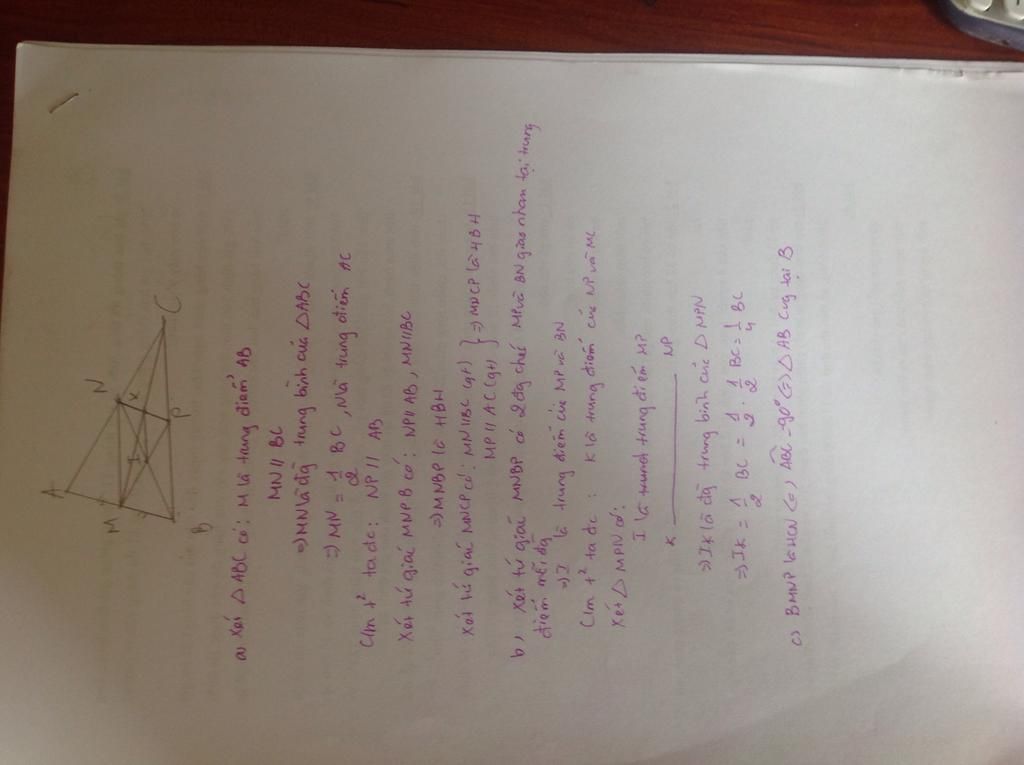 A
M
N
I
K
B
P
C
a) Xét △ABC có: M là trung điểm AB
MN // BC
=> MN là đg trung bình của △ABC
=> MN = 1/2 BC, N là trung điểm AC
C/m t² ta đc: NP // AB
Xét tứ giác MNPB có: NP // AB, MN // BC
=> MNBP là HBH
Xét tứ giác MNCP có: MN // BC (gt) } => MNCP là HBH
MP // AC (gt)
b, Xét tứ giác MNBP có 2 đg chéo MP và BN giao nhau tại trung
điểm mỗi đg
=> I là trung điểm của MP và BN
C/m t² ta đc: K là trung điểm của NP và MC
Xét △MPN có:
I là trung điểm MP
K ________ NP
=> IK là đg trung bình của △MPN
=> IK = 1/2 BC = 1/2 . 1/2 BC = 1/4 BC
c) BMNP là HCN <=> ABC = 90° <=> △AB tại B